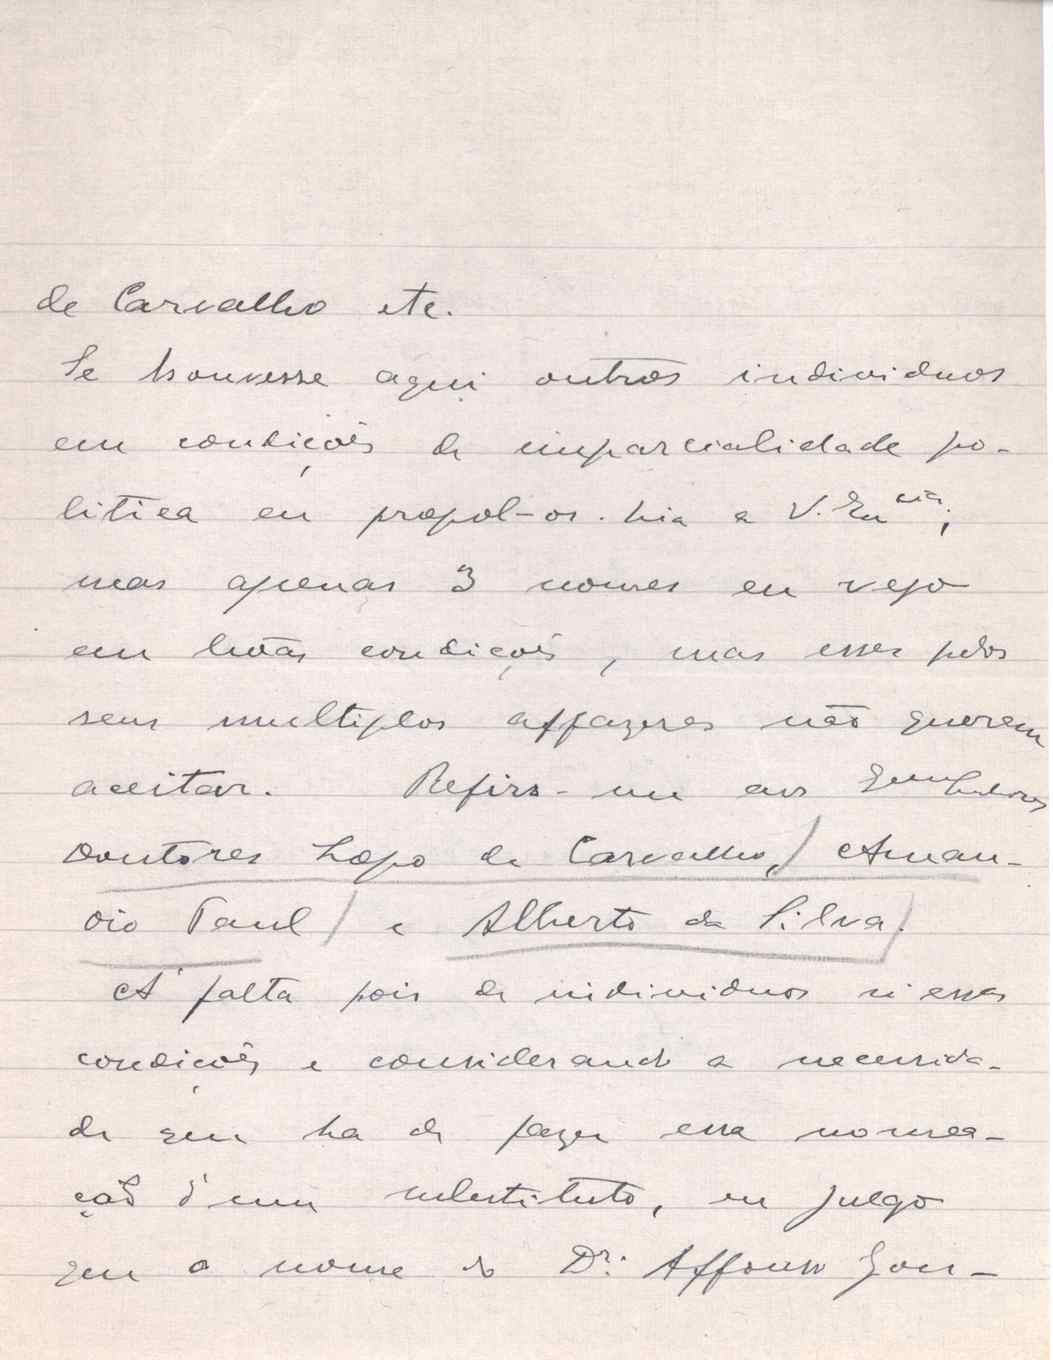 de Carvalho etc.
Se houvesse aqui outros individuos
em condições de imparcialidade po-
litica eu propol-os-hia a V. Ex.cia;
mas apenas 3 nomes eu vejo
em bôas condições, mas esses pelos
seus multiplos affazeres não querem
aceitar. Refiro-me aos Exmos Senhores
Doutores Lopo de Carvalho, Aman-
cio Paul e Alberto da Silva.
A' falta pois de individuos n'essas
condições e considerando a necessida-
de que ha de fazer essa nomea-
ção d'um substituto, eu julgo
que o nome do Dr. Affonso Gou-